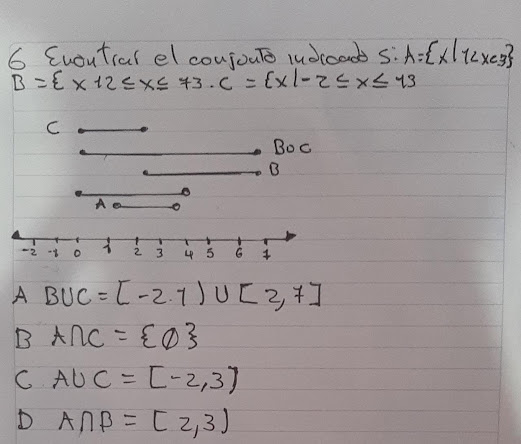 6 Encontrar el conjunto indicado si: A={x|12x<3}
B={x12≤x≤73. C={x|-2≤x≤13
C
BoC
B
A
-2 -1 0 1 2 3 4 5 6 7
A BUC=[-2.1)U[2,7]
B A∩C={∅}
C AUC=[-2,3]
D A∩B=[2,3)